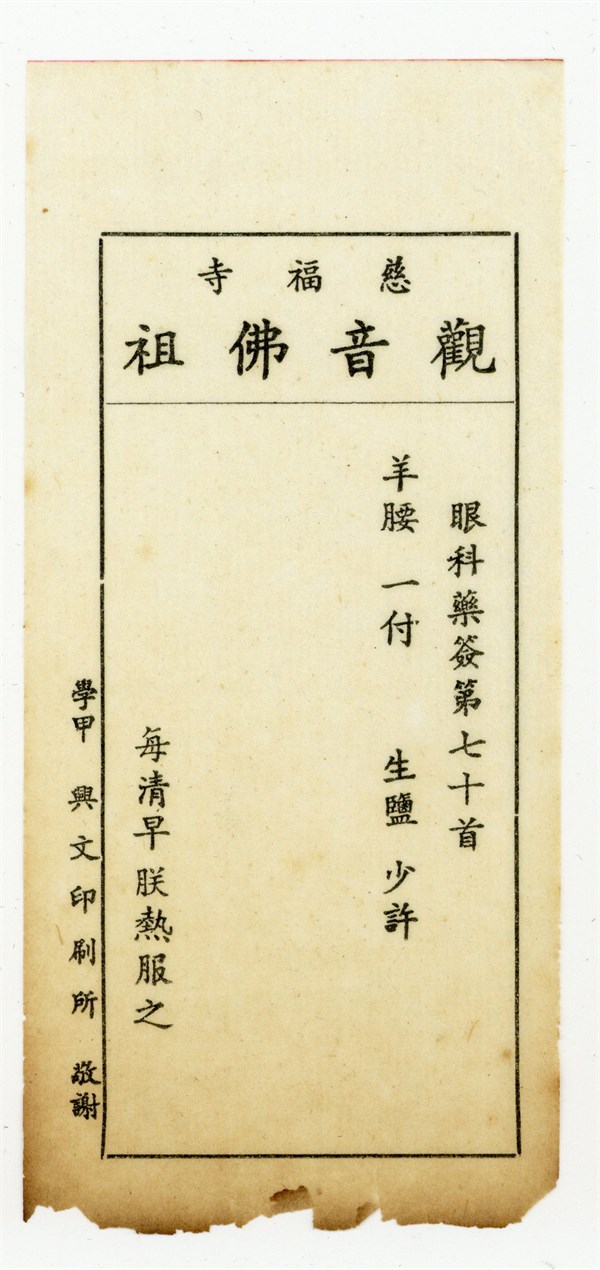 慈福寺
觀音佛祖
眼科藥簽第七十首
羊腰 一付 生鹽 少許
每清早朕熱服之
學甲 興文印刷所 敬謝